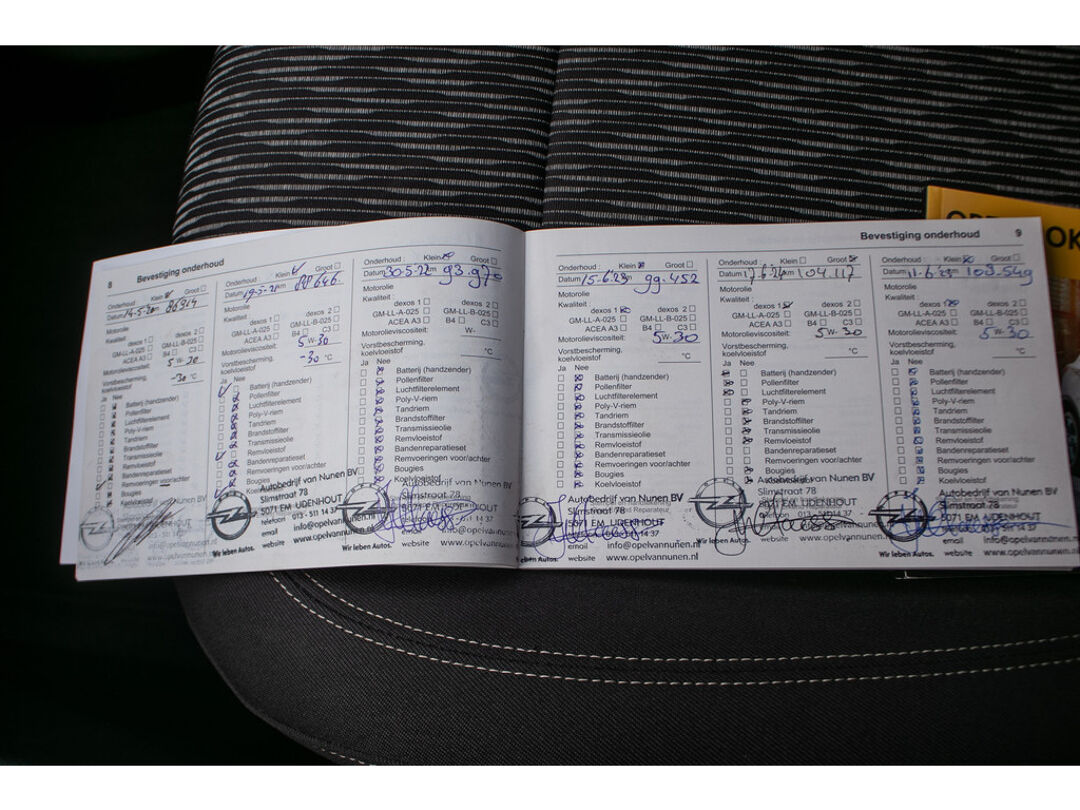 8
Bevestiging onderhoud
Onderhoud : Klein Groot
Datum 14-5-20 86914
Motorolie
Kwaliteit : dexos 1 dexos 2
GM-LL-A-025 GM-LL-B-025
ACEA A3 B4 C3
Motorolieviscositeit: 5 W- 30
Vorstbescherming,
koelvloeistof -30 °C
Ja Nee
Batterij (handzender)
Pollenfilter
Luchtfilterelement
Poly-V-riem
Tandriem
Brandstoffilter
Transmissieolie
Remvloeistof
Bandenreparatieset
Remvoeringen voor/achter
Bougies
Onderhoud : Klein Groot
Datum km
Motorolie
Kwaliteit : dexos 1 dexos 2
GM-LL-A-025 GM-LL-B-025
ACEA A3 B4 C3
Motorolieviscositeit: 5 W- 30
Vorstbescherming,
koelvloeistof -30 °C
Ja Nee
Batterij (handzender)
Pollenfilter
Luchtfilterelement
Poly-V-riem
Tandriem
Brandstoffilter
Transmissieolie
Remvloeistof
Bandenreparatieset
Remvoeringen voor/achter
Bougies
Koelvloeistof
Autobedrijf van Nunen BV
Slimstraat 78
5071 EM UDENHOUT
telefoon 013 - 511 14 37
email info@opelvannunen.nl
Wir leben Autos. website www.opelvannunen.nl
Onderhoud : Klein Groot
Datum 30-5-22 km 93.970
Motorolie
Kwaliteit : dexos 1 dexos 2
GM-LL-A-025 GM-LL-B-025
ACEA A3 B4 C3
Motorolieviscositeit: W-
Vorstbescherming,
koelvloeistof °C
Ja Nee
Batterij (handzender)
Pollenfilter
Luchtfilterelement
Poly-V-riem
Tandriem
Brandstoffilter
Transmissieolie
Remvloeistof
Bandenreparatieset
Remvoeringen voor/achter
Bougies
Koelvloeistof
Autobedrijf van Nunen BV
Slimstraat 78
5071 EM UDENHOUT
Wir leben Autos. website www.opelvannunen.nl
Bevestiging onderhoud
9
Onderhoud : Klein Groot
Datum 15-6-23 km 99.452
Motorolie
Kwaliteit : dexos 1 dexos 2
GM-LL-A-025 GM-LL-B-025
ACEA A3 B4 C3
Motorolieviscositeit: 5 W- 30
Vorstbescherming,
koelvloeistof °C
Ja Nee
Batterij (handzender)
Pollenfilter
Luchtfilterelement
Poly-V-riem
Tandriem
Brandstoffilter
Transmissieolie
Remvloeistof
Bandenreparatieset
Remvoeringen voor/achter
Bougies
Koelvloeistof
Autobedrijf van Nunen BV
Slimstraat 78
5071 EM UDENHOUT
email info@opelvannunen.nl
website www.opelvannunen.nl
Onderhoud : Klein Groot
Datum 17-6-24 km 104.117
Motorolie
Kwaliteit : dexos 1 dexos 2
GM-LL-A-025 GM-LL-B-025
ACEA A3 B4 C3
Motorolieviscositeit: 5 W- 30
Vorstbescherming,
koelvloeistof °C
Ja Nee
Batterij (handzender)
Pollenfilter
Luchtfilterelement
Poly-V-riem
Tandriem
Brandstoffilter
Transmissieolie
Remvloeistof
Bandenreparatieset
Remvoeringen voor/achter
Bougies
Koelvloeistof
Autobedrijf van Nunen BV
Slimstraat 78
5071 EM UDENHOUT
email info@opelvannunen.nl
Wir leben Autos. website www.opelvannunen.nl
Onderhoud : Klein Groot
Datum 11-6-25 km 103.549
Motorolie
Kwaliteit : dexos 1 dexos 2
GM-LL-A-025 GM-LL-B-025
ACEA A3 B4 C3
Motorolieviscositeit: 5 W- 30
Vorstbescherming,
koelvloeistof °C
Ja Nee
Batterij (handzender)
Pollenfilter
Luchtfilterelement
Poly-V-riem
Tandriem
Brandstoffilter
Transmissieolie
Remvloeistof
Bandenreparatieset
Remvoeringen voor/achter
Bougies
Koelvloeistof
Autobedrijf van Nunen BV
Slimstraat 78
5071 EM UDENHOUT
email info@opelvannunen.nl
Wir leben Autos. website www.opelvannunen.nl